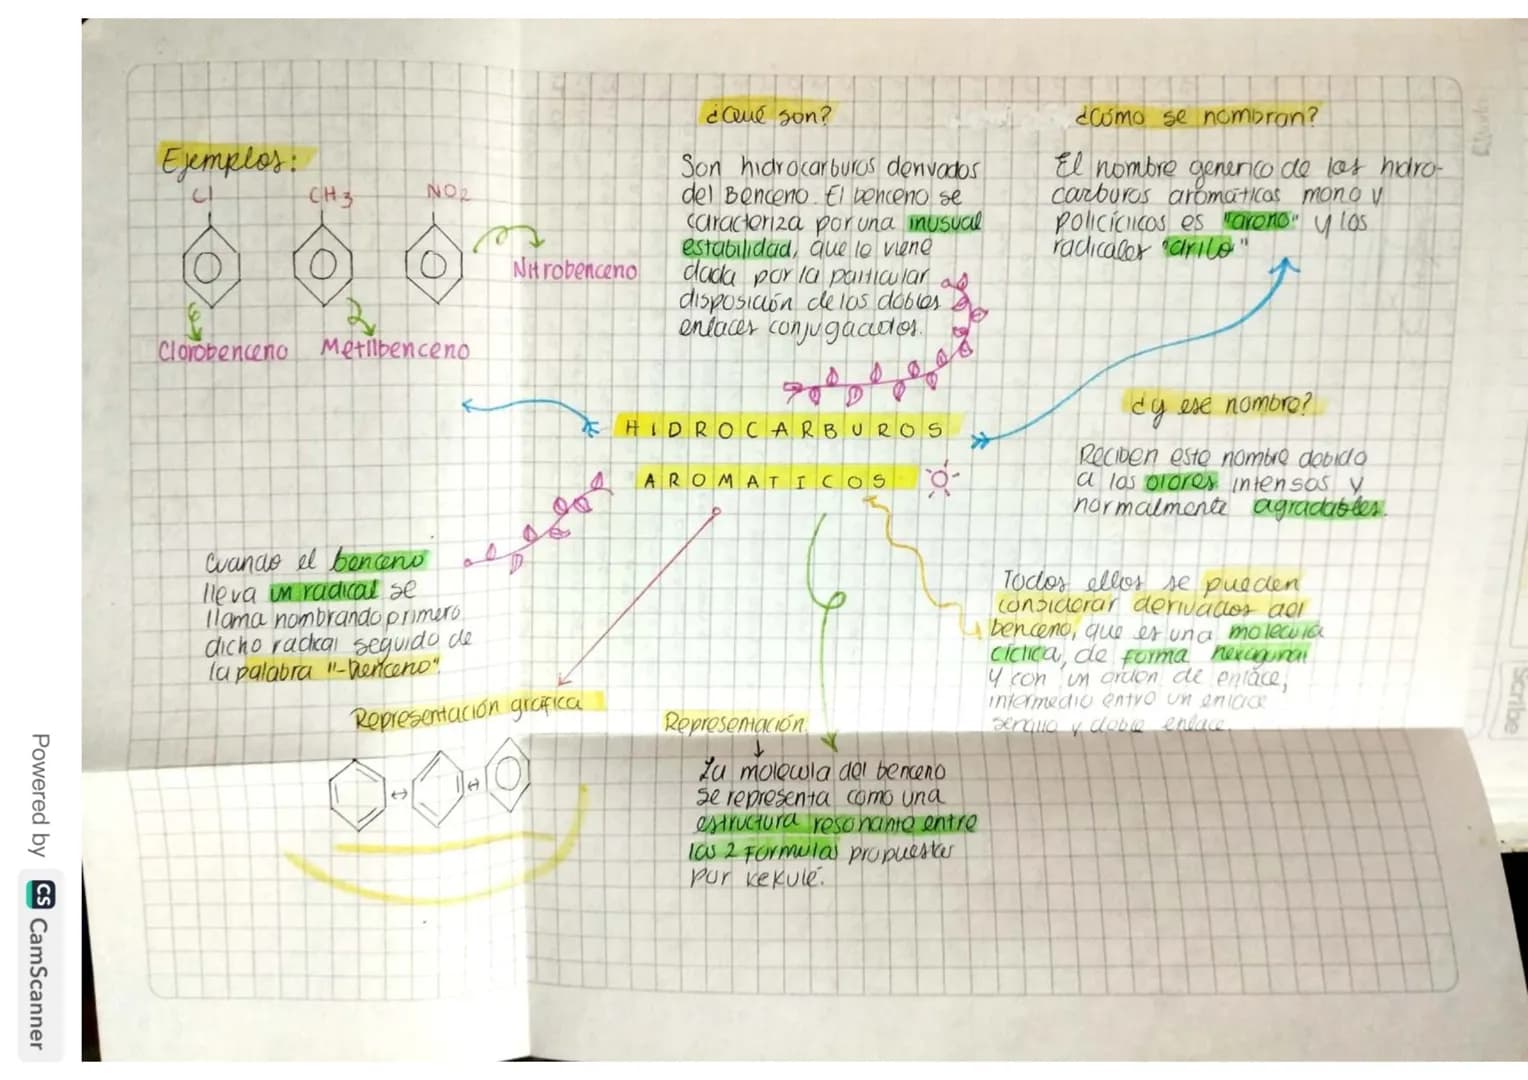 Ejemplos:
Cl
CH3
NO2
Nitrobenceno
Clorobenceno
Metilbenceno
¿Qué son?
Son hidrocarburos derivados
del Benceno. El benceno se
caracteriza por una inusual
estabilidad, que le viene
dada por la particular
disposición de los dobles
enlaces conjugados.
¿Cómo se nombran?
El nombre generico de los hidro-
carburos aromáticos mono y
policíclicos es "areno" y los
radicales "arilo"
HIDROCARBUROS
AROMATICOS
¿y ese nombre?
Reciben este nombre debido
a los olores intensos y
normalmente agradables.
Cuando el benceno
lleva un radical se
llama nombrando primero
dicho radical seguido de
la palabra "-benceno".
Todos ellos se pueden
considerar derivados del
benceno, que es una molecula
cíclica, de forma hexagonal
y con un orden de enlace,
intermedio entre un enlace
y doble enlace.
Representación grafica
Representación
La molecula del benceno
se representa como una
estructura resonante entre
las 2 formulas propuestas
por kekulé.
Powered by CS CamScanner
Scribe